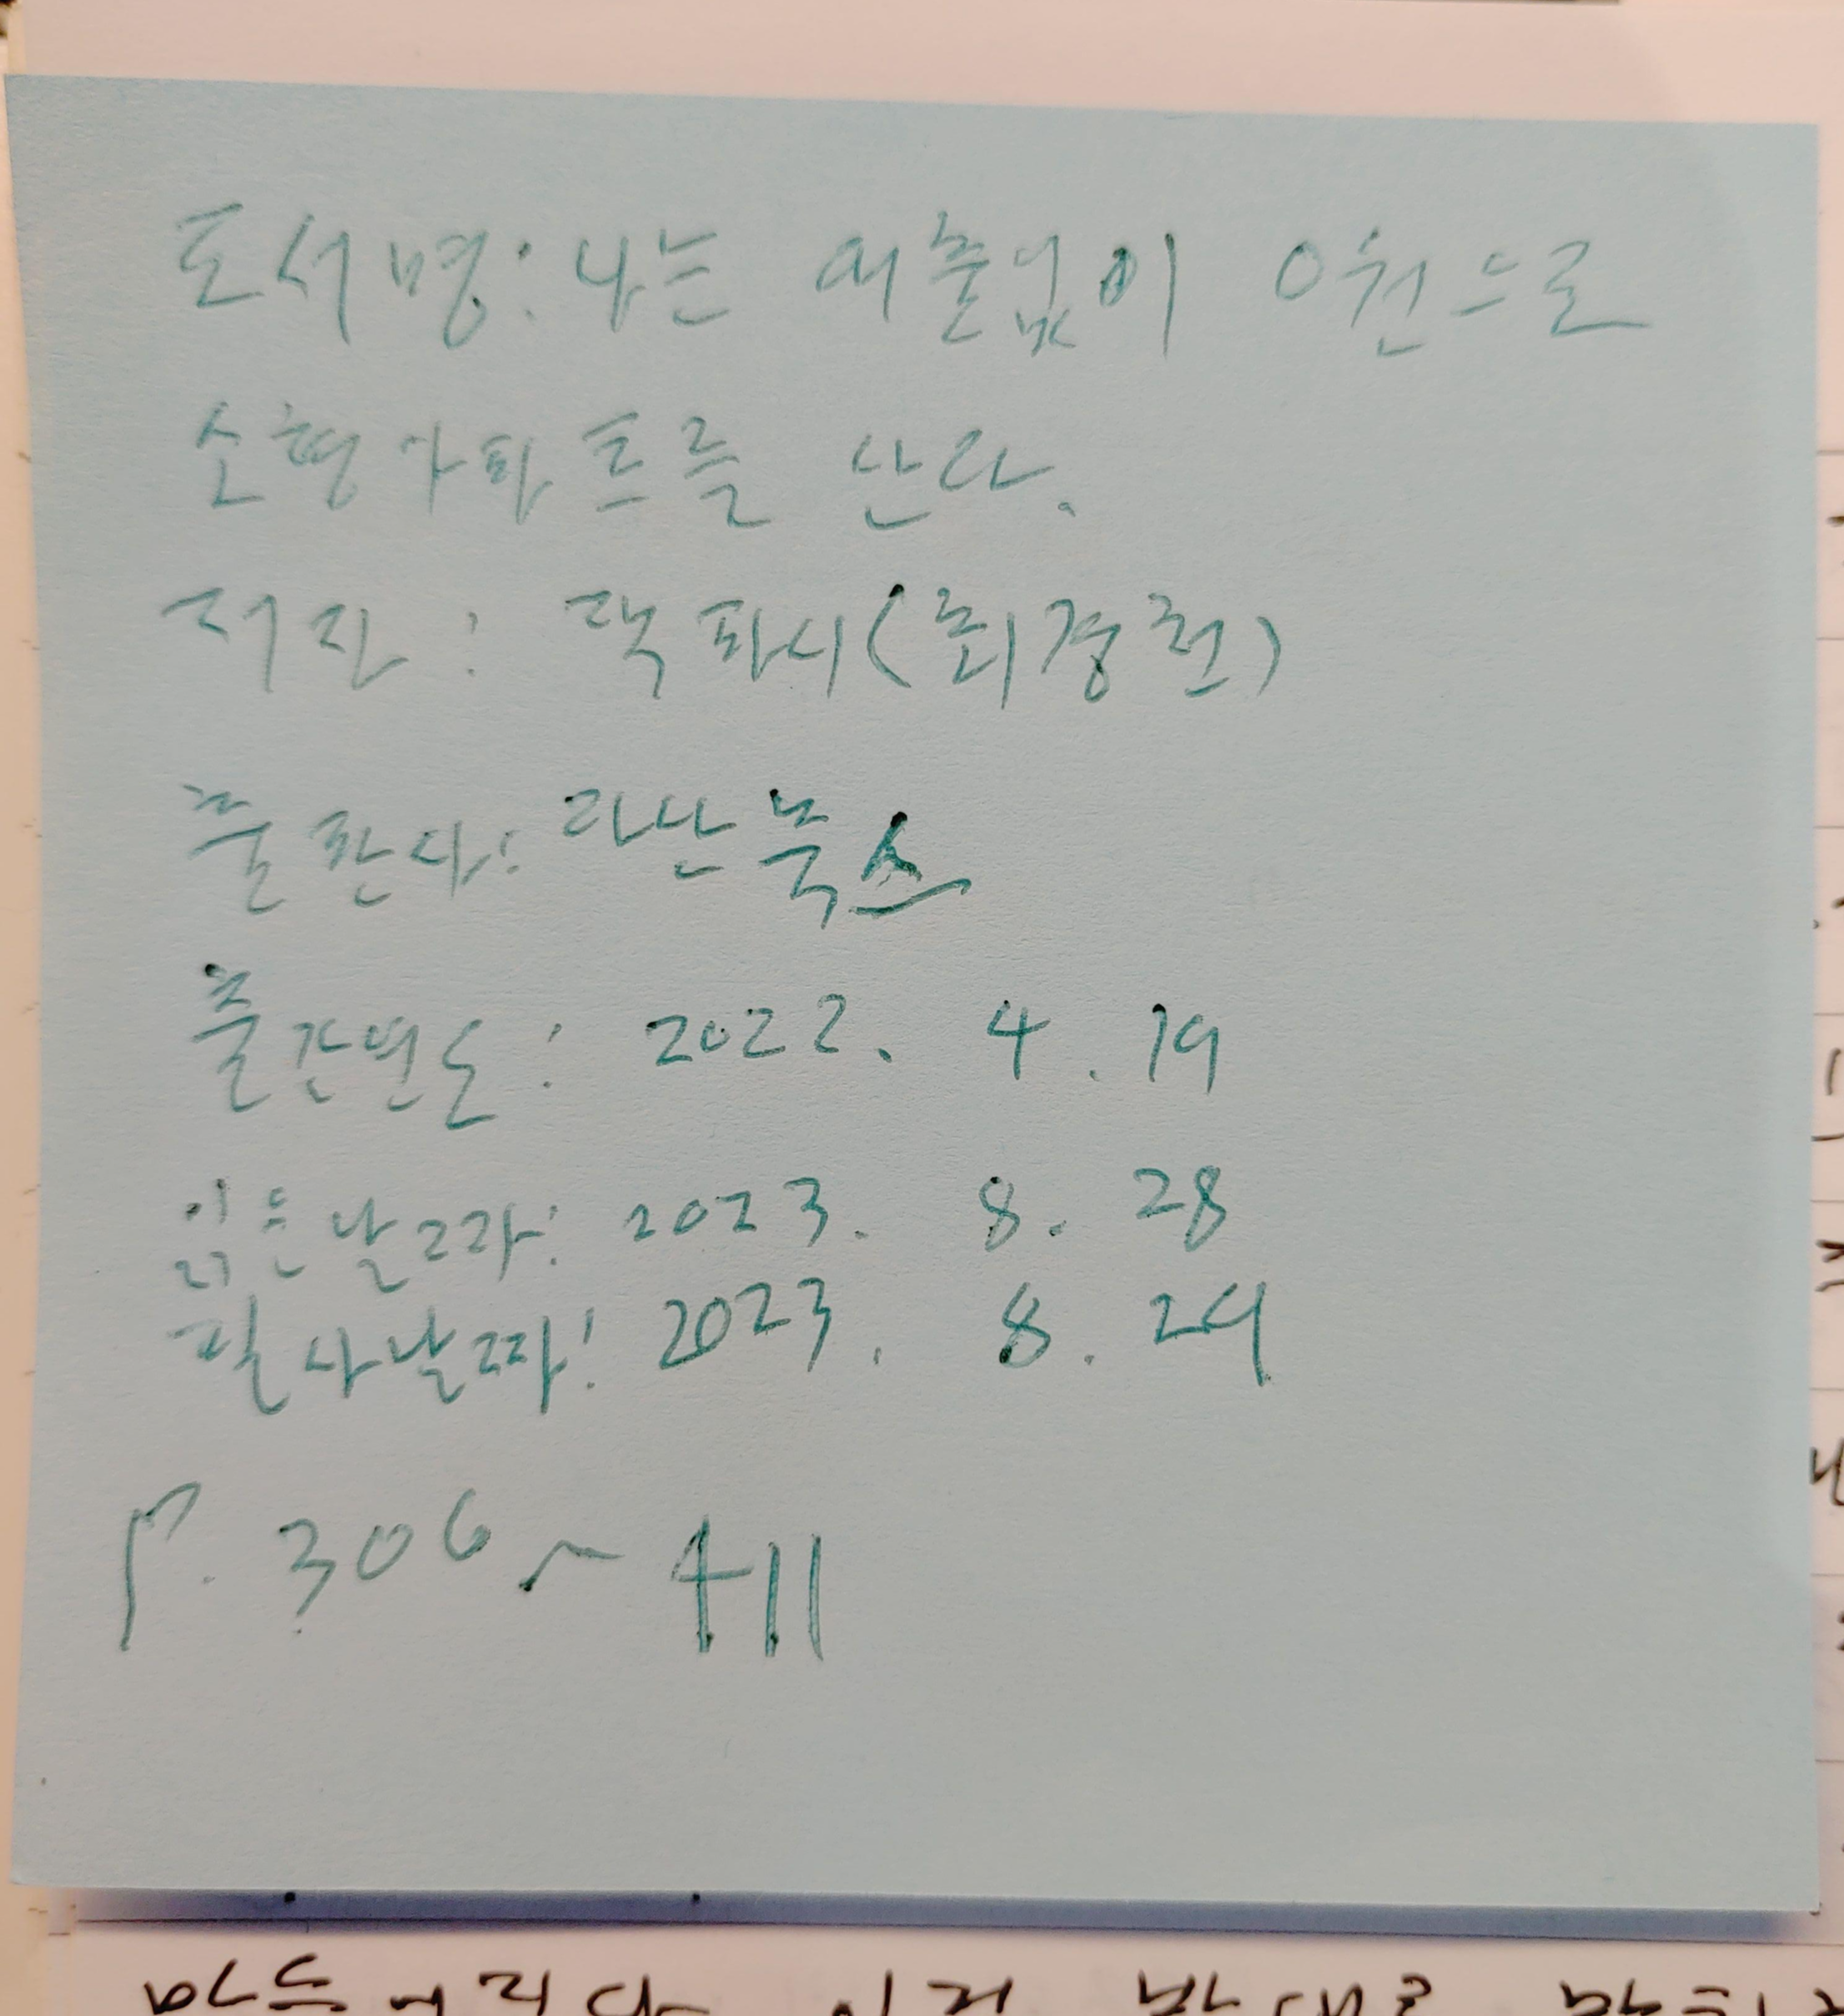 도서명: 나는 대출없이 0원으로
소형아파트를 산다.
저자 : 잭파시(최경천)
출판사: 다산북스
출간년도: 2022. 4. 19
읽은날짜: 2023. 8. 28
필사날짜: 2023. 8. 29
P. 306 ~ 411